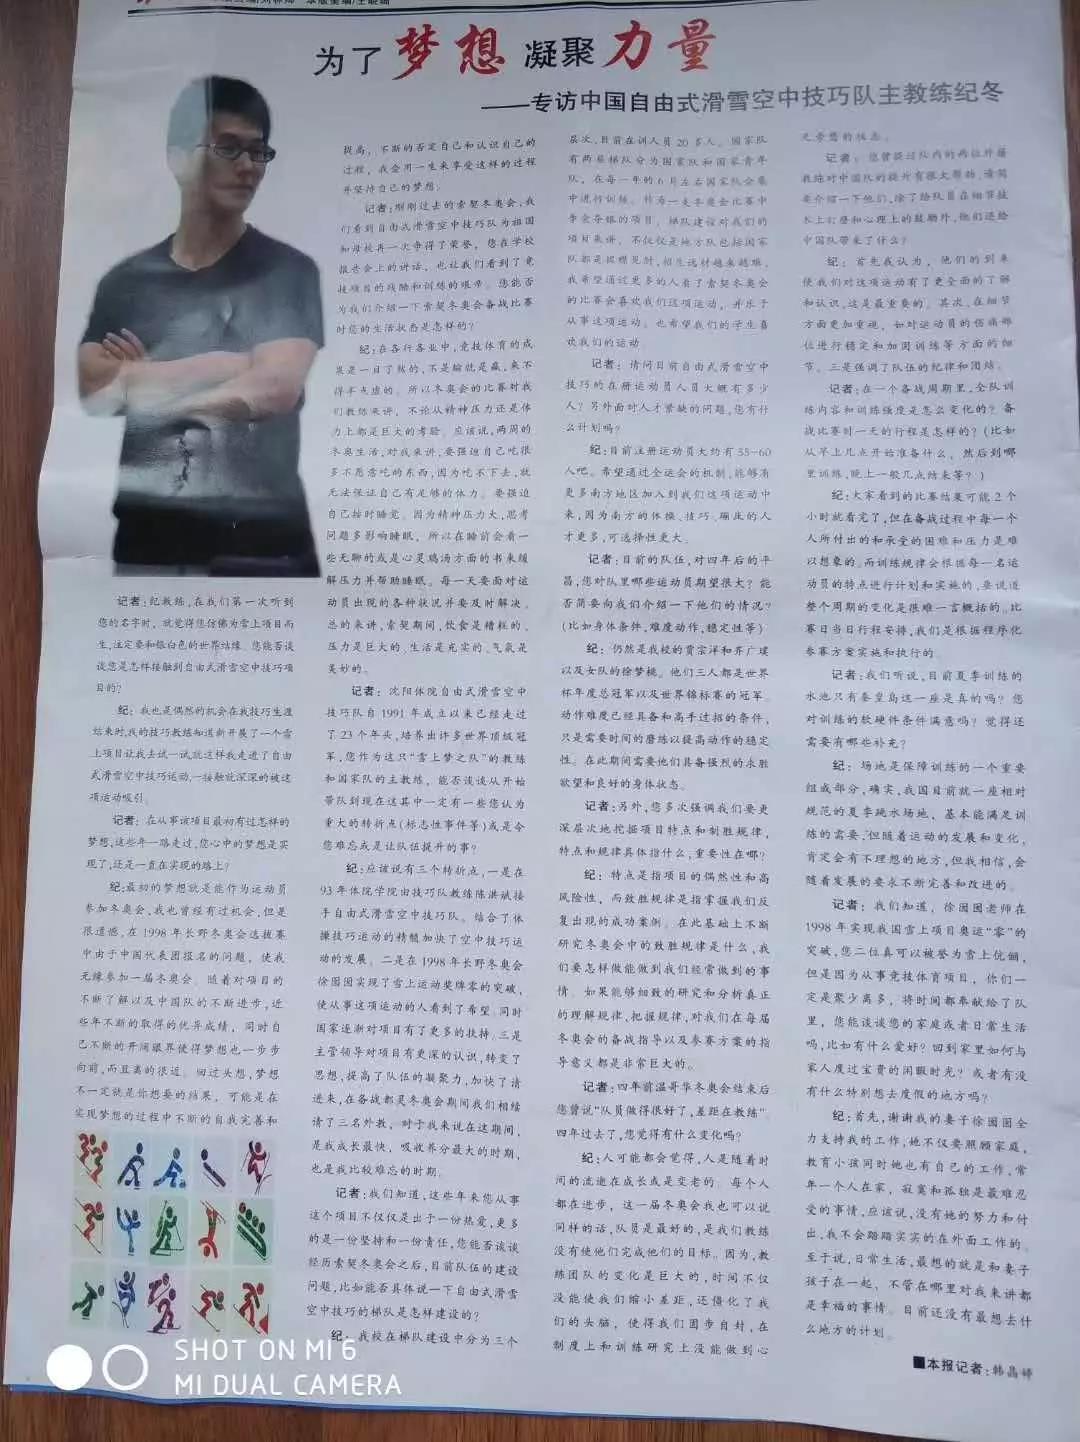 为了梦想 凝聚力量
——专访中国自由式滑雪空中技巧队主教练纪冬
记者:纪教练,在我们第一次听到
您的名字时,就觉得您仿佛为雪上项目而
生,注定要和银白色的世界结缘。您能否谈
谈您是怎样接触到自由式滑雪空中技巧项
目的?
纪:我也是偶然的机会在我技巧生涯
结束时,我的技巧教练知道新开展了一个雪
上项目让我去试一试,就这样我走进了自由
式滑雪空中技巧运动,一接触就深深的被这
项运动吸引。
记者:在从事该项目最初有过怎样的
梦想,这些年一路走过,您心中的梦想是实
现了,还是一直在实现的路上?
纪:最初的梦想就是能作为运动员
参加冬奥会,我也曾经有过机会,但是
很遗憾,在1998年长野冬奥会选拔赛
中由于中国代表团报名的问题,使我
无缘参加一届冬奥会。随着对项目的
不断了解以及中国队的不断进步,近
些年不断的取得的优异成绩,同时自
己不断的开阔眼界使得梦想也一步步
向前,而且离的很近。回过头想,梦想
不一定就是你想要的结果,可能是在
实现梦想的过程中不断的自我完善和
提高,不断的否定自己和认识自己的
过程,我会用一生来享受这样的过程
并坚持自己的梦想。
记者:刚刚过去的索契冬奥会,我
们看到自由式滑雪空中技巧队为祖国
和母校再一次争得了荣誉,您在学校
报告会上的讲话,也让我们看到了竞
技项目的残酷和训练的艰辛。您能否
为我们介绍一下索契冬奥会备战比赛
时您的生活状态是怎样的?
纪:在各行各业中,竞技体育的成
果是一目了然的,不是输就是赢,来不
得半点虚的。所以冬奥会的比赛对我
们教练来讲,不论从精神压力还是体
力上都是巨大的考验。应该说,两周的
冬奥生活,对我来讲,要强迫自己吃很
多不愿意吃的东西,因为吃不下去,就
无法保证自己有足够的体力。要强迫
自己按时睡觉。因为精神压力大,思考
问题多影响睡眠,所以在睡前会看一
些无聊的或是心灵鸡汤方面的书来缓
解压力并帮助睡眠。每一天要面对运
动员出现的各种状况并要及时解决。
总的来讲,索契期间,饮食是糟糕的、
压力是巨大的、生活是充实的、气氛是
美妙的。
记者:沈阳体院自由式滑雪空中
技巧队自1991年成立以来已经走过
了23个年头,培养出许多世界顶级冠
军,您作为这只“雪上梦之队”的教练
和国家队的主教练,能否谈谈从开始
带队到现在这其中一定有一些您认为
重大的转折点(标志性事件等)或是令
您难忘或是让队伍提升的事?
纪:应该说有三个转折点,一是在
93年体院学院由技巧队教练陈洪斌接
手自由式滑雪空中技巧队。结合了体
操技巧运动的精髓加快了空中技巧运
动的发展。二是在1998年长野冬奥会
徐囡囡实现了雪上运动奖牌零的突破,
使从事这项运动的人看到了希望。同时
国家逐渐对项目有了更多的扶持。三是
主管领导对项目有更深的认识,转变了
思想,提高了队伍的凝聚力,加快了请
进来,在备战都灵冬奥会期间我们相续
请了三名外教。对于我来说在这期间,
是我成长最快,吸收养分最大的时期,
也是我比较难忘的时期。
记者:我们知道,这些年来您从事
这个项目不仅仅是出于一份热爱,更多
的是一份坚持和一份责任,您能否谈谈
经历索契冬奥会之后,目前队伍的建设
问题,比如能否具体说一下自由式滑雪
空中技巧的梯队是怎样建设的?
纪:我校在梯队建设中分为三个
层次,目前在训人员20多人。国家队
有两层梯队分为国家队和国家青年
队,在每一年的6月左右国家队会集
中进行训练。作为一支冬奥会比赛中
争金夺银的项目,梯队建设对我们的
项目来讲,不仅仅是地方队包括国家
队都是捉襟见肘,招生选材越来越难。
我希望通过更多的人看了索契冬奥会
的比赛会喜欢我们这项运动,并乐于
从事这项运动。也希望我们的学生喜
欢我们的运动。
记者:请问目前自由式滑雪空中
技巧的在册运动员人员大概有多少
人?另外面对人才紧缺的问题,您有什
么计划吗?
纪:目前注册运动员大约有55-60
人吧。希望通过全运会的机制,能够有
更多南方地区加入到我们这项运动中
来,因为南方的体操、技巧、蹦床的人
才更多,可选择性更大。
记者:目前的队伍,对四年后的平
昌,您对队里哪些运动员期望很大?能
否简要向我们介绍一下他们的情况?
(比如身体条件,难度动作,稳定性等)
纪:仍然是我校的贾宗洋和齐广璞
以及女队的徐梦桃。他们三人都是世界
杯年度总冠军以及世界锦标赛的冠军。
动作难度已经具备和高手过招的条件,
只是需要时间的磨练以提高动作的稳定
性。在此期间需要他们具备强烈的求胜
欲望和良好的身体状态。
记者:另外,您多次强调我们要更
深层次地挖掘项目特点和制胜规律,
特点和规律具体指什么,重要性在哪?
纪:特点是指项目的偶然性和高
风险性,而致胜规律是指掌握我们反
复出现的成功案例。在此基础上不断
研究冬奥会中的致胜规律是什么,我
们要怎样做能做到我们经常做到的事
情。如果能够细致的研究和分析真正
的理解规律,把握规律,对我们在每届
冬奥会的备战指导以及参赛方案的指
导意义都是非常巨大的。
记者:四年前温哥华冬奥会结束后
您曾说“队员做得很好了,差距在教练”。
四年过去了,您觉得有什么变化吗?
纪:人可能都会觉得,人是随着时
间的流逝在成长或是变老的。每个人
都在进步,这一届冬奥会我也可以说
同样的话,队员是最好的,是我们教练
没有使他们完成他们的目标。因为,教
练团队的变化是巨大的,时间不仅
没能使我们缩小差距,还僵化了我
们的头脑,使得我们固步自封,在
制度上和训练研究上没能做到心
无旁骛的状态。
记者:您曾提过队内的两位外籍
教练对中国队的提升有很大帮助,请简
要介绍一下他们,除了给队员在细节技
术上打磨和心理上的鼓励外,他们还给
中国队带来了什么?
纪:首先我认为,他们的到来
使我们对这项运动有了更全面的了解
和认识,这是最重要的。其次,在细节
方面更加重视,如对运动员的伤痛部
位进行稳定和加固训练等方面的细
节。三是强调了队伍的纪律和团结。
记者:在一个备战周期里,全队训
练内容和训练强度是怎么变化的?备
战比赛时一天的行程是怎样的?(比如
从早上几点开始准备什么,然后到哪
里训练,晚上一般几点结束等?)
纪:大家看到的比赛结果可能2个
小时就看完了,但在备战过程中每一个
人所付出的和承受的困难和压力是难
以想象的。而训练规律会根据每一名运
动员的特点进行计划和实施的,要说道
整个周期的变化是很难一言概括的。比
赛日当日行程安排,我们是根据程序化
参赛方案实施和执行的。
记者:我们听说,目前夏季训练的
水池只有秦皇岛这一座是真的吗?您
对训练的软硬件条件满意吗?觉得还
需要有哪些补充?
纪:场地是保障训练的一个重要
组成部分,确实,我国目前就一座相对
规范的夏季跳水场地,基本能满足训
练的需要,但随着运动的发展和变化,
肯定会有不理想的地方,但我相信,会
随着发展的要求不断完善和改进的。
记者:我们知道,徐囡囡老师在
1998年实现我国雪上项目奥运“零”的
突破,您二位真可以被誉为雪上伉俪,
但是因为从事竞技体育项目,你们一
定是聚少离多,将时间都奉献给了队
里,您能谈谈您的家庭或者日常生活
吗,比如有什么爱好?回到家里如何与
家人度过宝贵的闲暇时光?或者有没
有什么特别想去度假的地方吗?
纪:首先,谢谢我的妻子徐囡囡全
力支持我的工作,她不仅要照顾家庭,
教育小孩同时她也有自己的工作,常
年一个人在家,寂寞和孤独是最难忍
受的事情,应该说,没有她的努力和付
出,我不会踏踏实实的在外面工作的。
至于说,日常生活,最想的就是和妻子
孩子在一起,不管在哪里对我来讲都
是幸福的事情。目前还没有最想去什
么地方的计划。
■本报记者:韩晶婷
SHOT ON MI 6
MI DUAL CAMERA